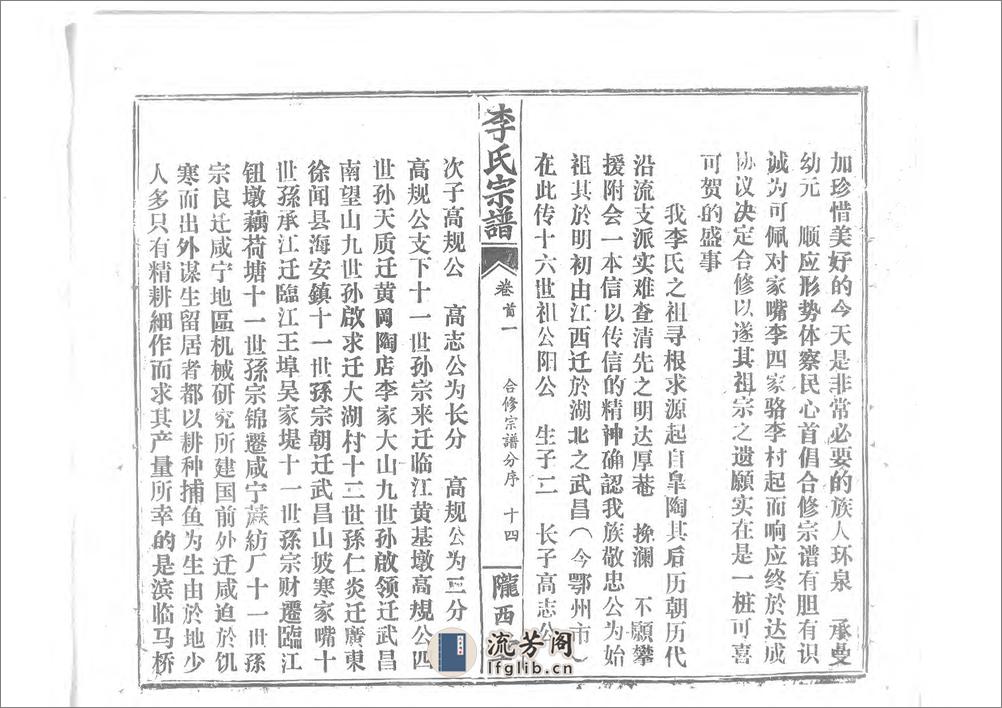 加珍惜美好的今天是非常必要的族人环泉　承曼
幼元　顺应形势体察民心首倡合修宗谱有胆有识
诚为可佩对家嘴李四家骆李村起而响应终於达成
协议决定合修以遂其祖宗之遗願实在是一桩可喜
可贺的盛事
我李氏之祖寻根求源起自皐陶其后历朝历代
沿流支派实难查清先之明达厚菴　挽澜　不願攀
援附会一本信以传信的精神确認我族敬忠公为始
祖其於明初由江西迁於湖北之武昌（今鄂州市）
在此传十六世祖公阳公　生子二　长子高志公
李氏宗譜
卷首一
合修宗譜分序　十四
隴西
次子高规公　高志公为长分　高规公为三分
高规公支下十一世孙宗来迁临江黄基墩高规公四
世孙天质迁黄冈陶店李家大山九世孙啟领迁武昌
南望山九世孙啟求迁大湖村十二世孫仁炎迁廣東
徐闻县海安鎮十一世孫宗朝迁武昌山坡寒家嘴十
世孫承江迁臨江王埠吴家堤十一世孫宗财遷臨江
钮墩藕荷塘十一世孫宗锦遷咸宁蔴紡厂十一世孫
宗良迁咸宁地區机械研究所建国前外迁咸迫於饥
寒而出外谋生留居者都以耕种捕鱼为生由於地少
人多只有精耕細作而求其产量所幸的是滨临马桥
流芳阁
lfglib.cn